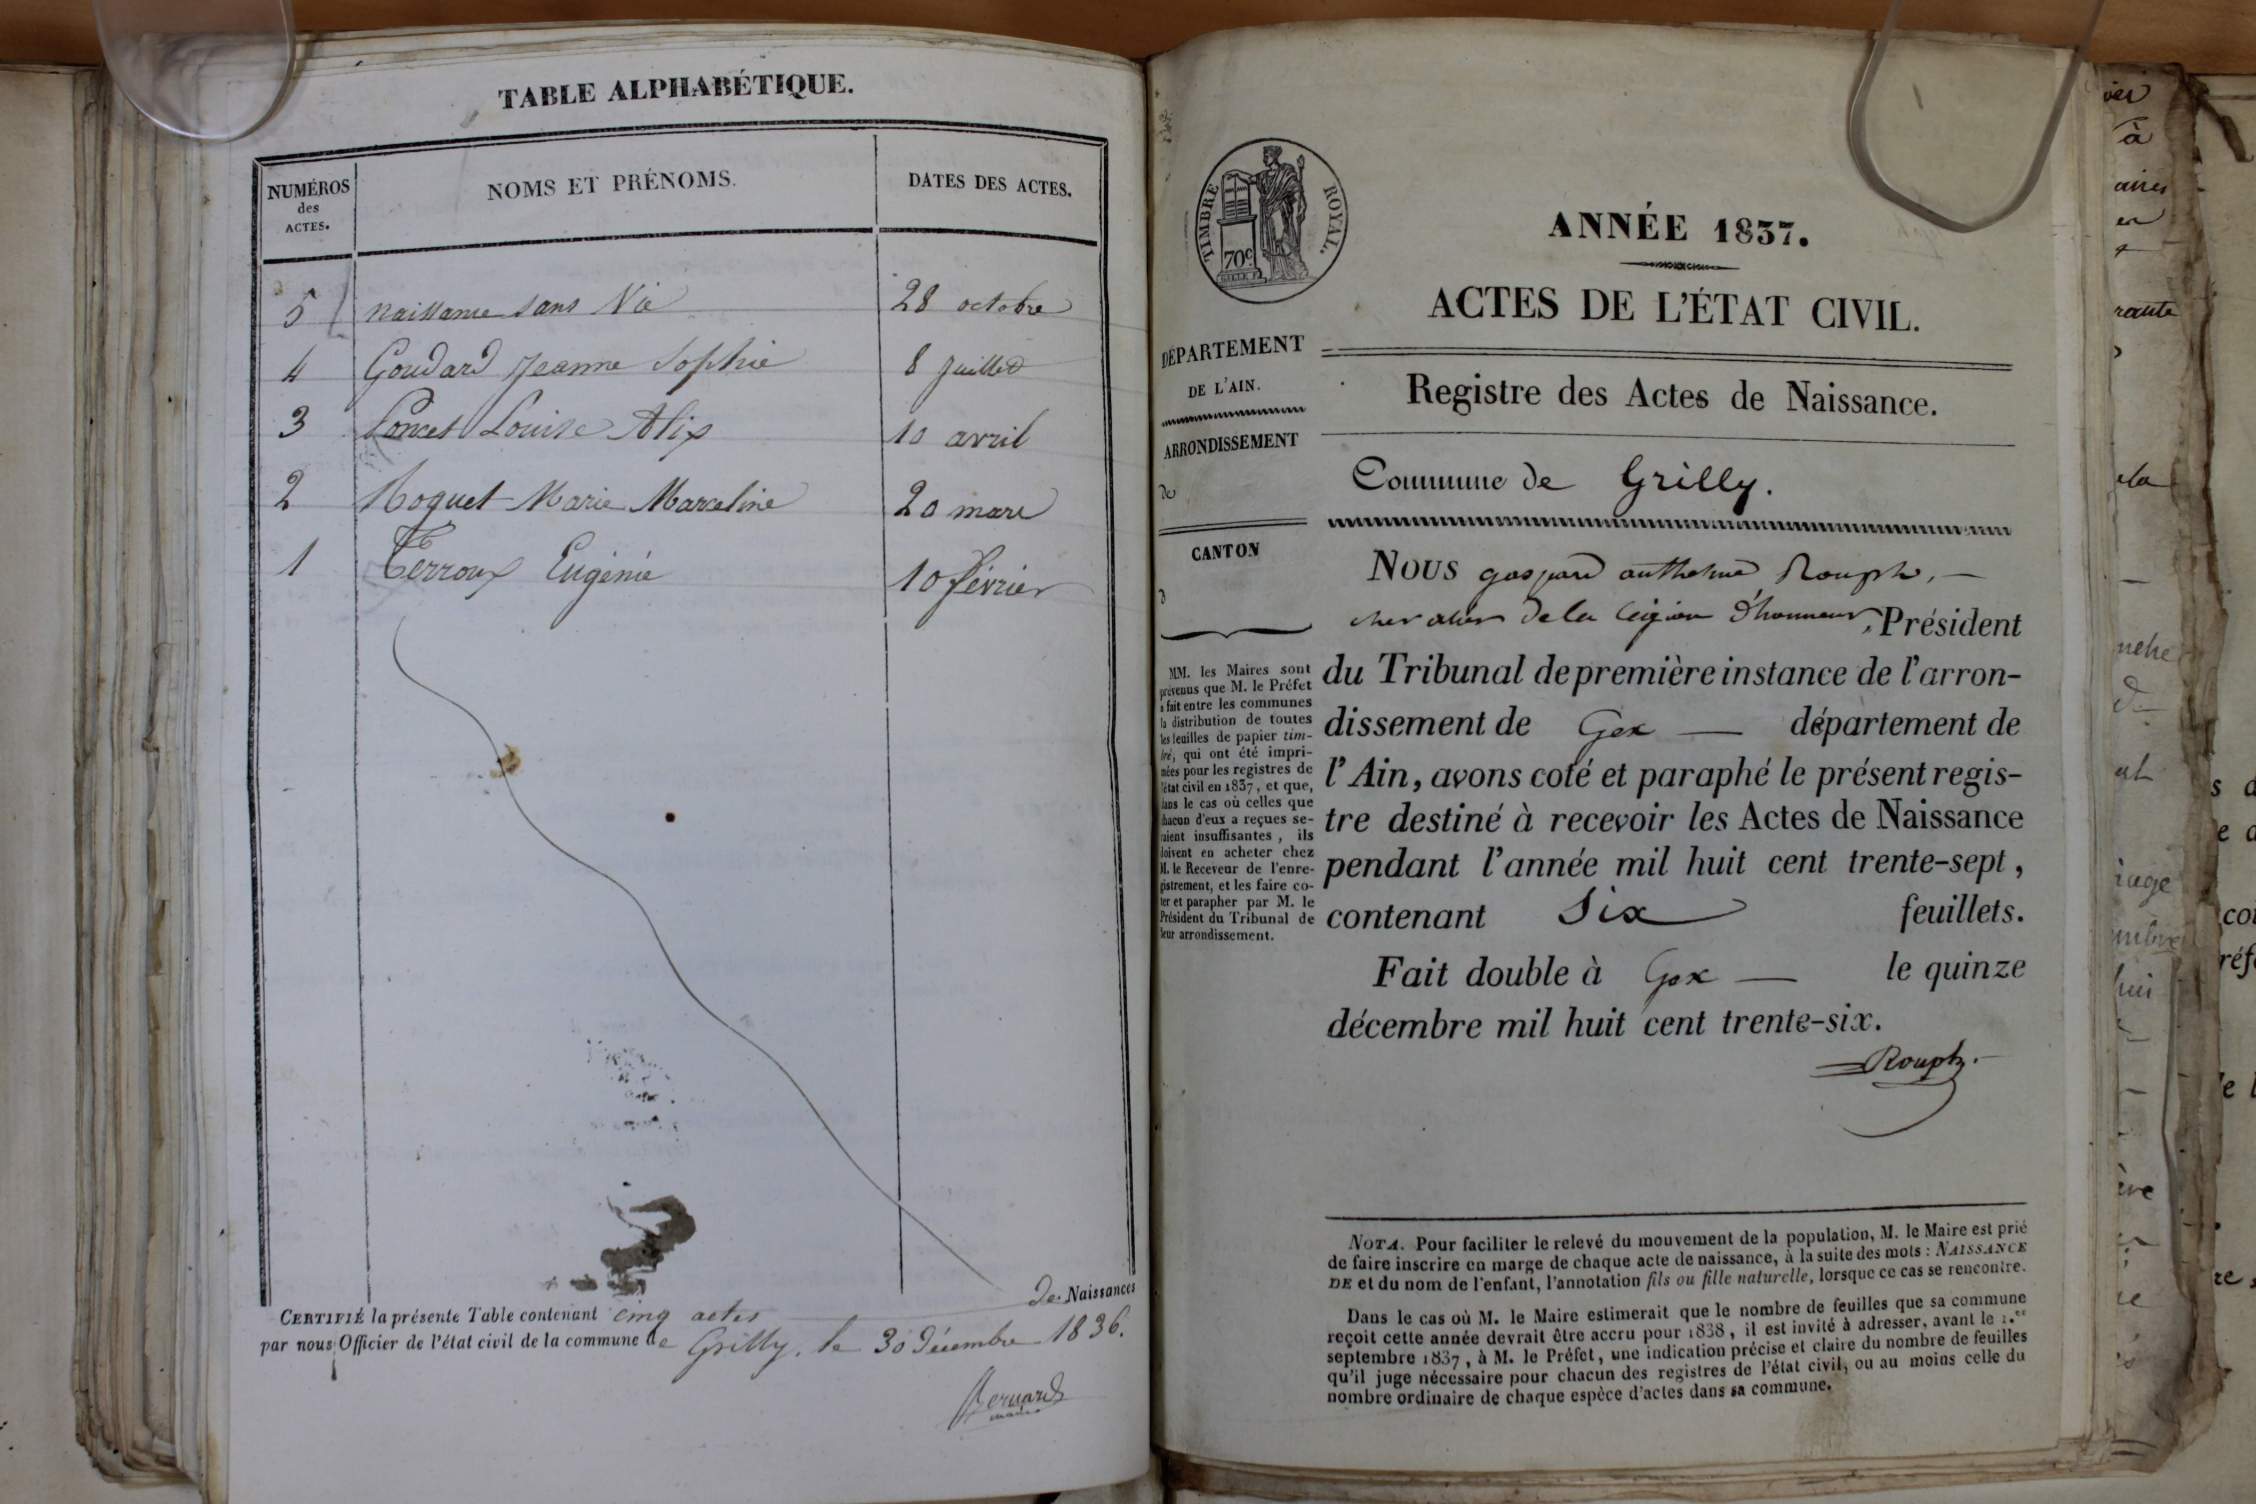 TABLE ALPHABÉTIQUE.
NUMÉROS des ACTES.
NOMS ET PRÉNOMS.
DATES DES ACTES.
5 naissance sans Vie 28 octobre
4 Goudard Jeanne Sophie 8 Juillet
3 Poncet Louise Alix 10 avril
2 Roquet Marie Marceline 20 mars
1 Terroux Eugénie 10 février
CERTIFIÉ la présente Table contenant cinq actes de Naissances
par nous Officier de l'état civil de la commune de Grilly, le 30 décembre 1836.
Bernard
maire
TIMBRE ROYAL.
70c
DÉPARTEMENT
DE L'AIN.
ARRONDISSEMENT
de
CANTON
d
MM. les Maires sont
prévenus que M. le Préfet
a fait entre les communes
la distribution de toutes
les feuilles de papier tim-
bré, qui ont été impri-
mées pour les registres de
l'état civil en 1837, et que,
dans le cas où celles que
chacun d'eux a reçues se-
raient insuffisantes, ils
doivent en acheter chez
M. le Receveur de l'enre-
gistrement, et les faire co-
ter et parapher par M. le
Président du Tribunal de
leur arrondissement.
ANNÉE 1837.
ACTES DE L'ÉTAT CIVIL.
Registre des Actes de Naissance.
Commune de Grilly.
NOUS gaspard anthelme Rouph,
chevalier de la légion d'honneur, Président
du Tribunal de première instance de l'arron-
dissement de Gex département de
l'Ain, avons coté et paraphé le présent regis-
tre destiné à recevoir les Actes de Naissance
pendant l'année mil huit cent trente-sept,
contenant Six feuillets.
Fait double à Gex le quinze
décembre mil huit cent trente-six.
Rouph.
NOTA. Pour faciliter le relevé du mouvement de la population, M. le Maire est prié
de faire inscrire en marge de chaque acte de naissance, à la suite des mots : NAISSANCE
DE et du nom de l'enfant, l'annotation fils ou fille naturelle, lorsque ce cas se rencontre.
Dans le cas où M. le Maire estimerait que le nombre de feuilles que sa commune
reçoit cette année devrait être accru pour 1838, il est invité à adresser, avant le 1.er
septembre 1837, à M. le Préfet, une indication précise et claire du nombre de feuilles
qu'il juge nécessaire pour chacun des registres de l'état civil, ou au moins celle du
nombre ordinaire de chaque espèce d'actes dans sa commune.